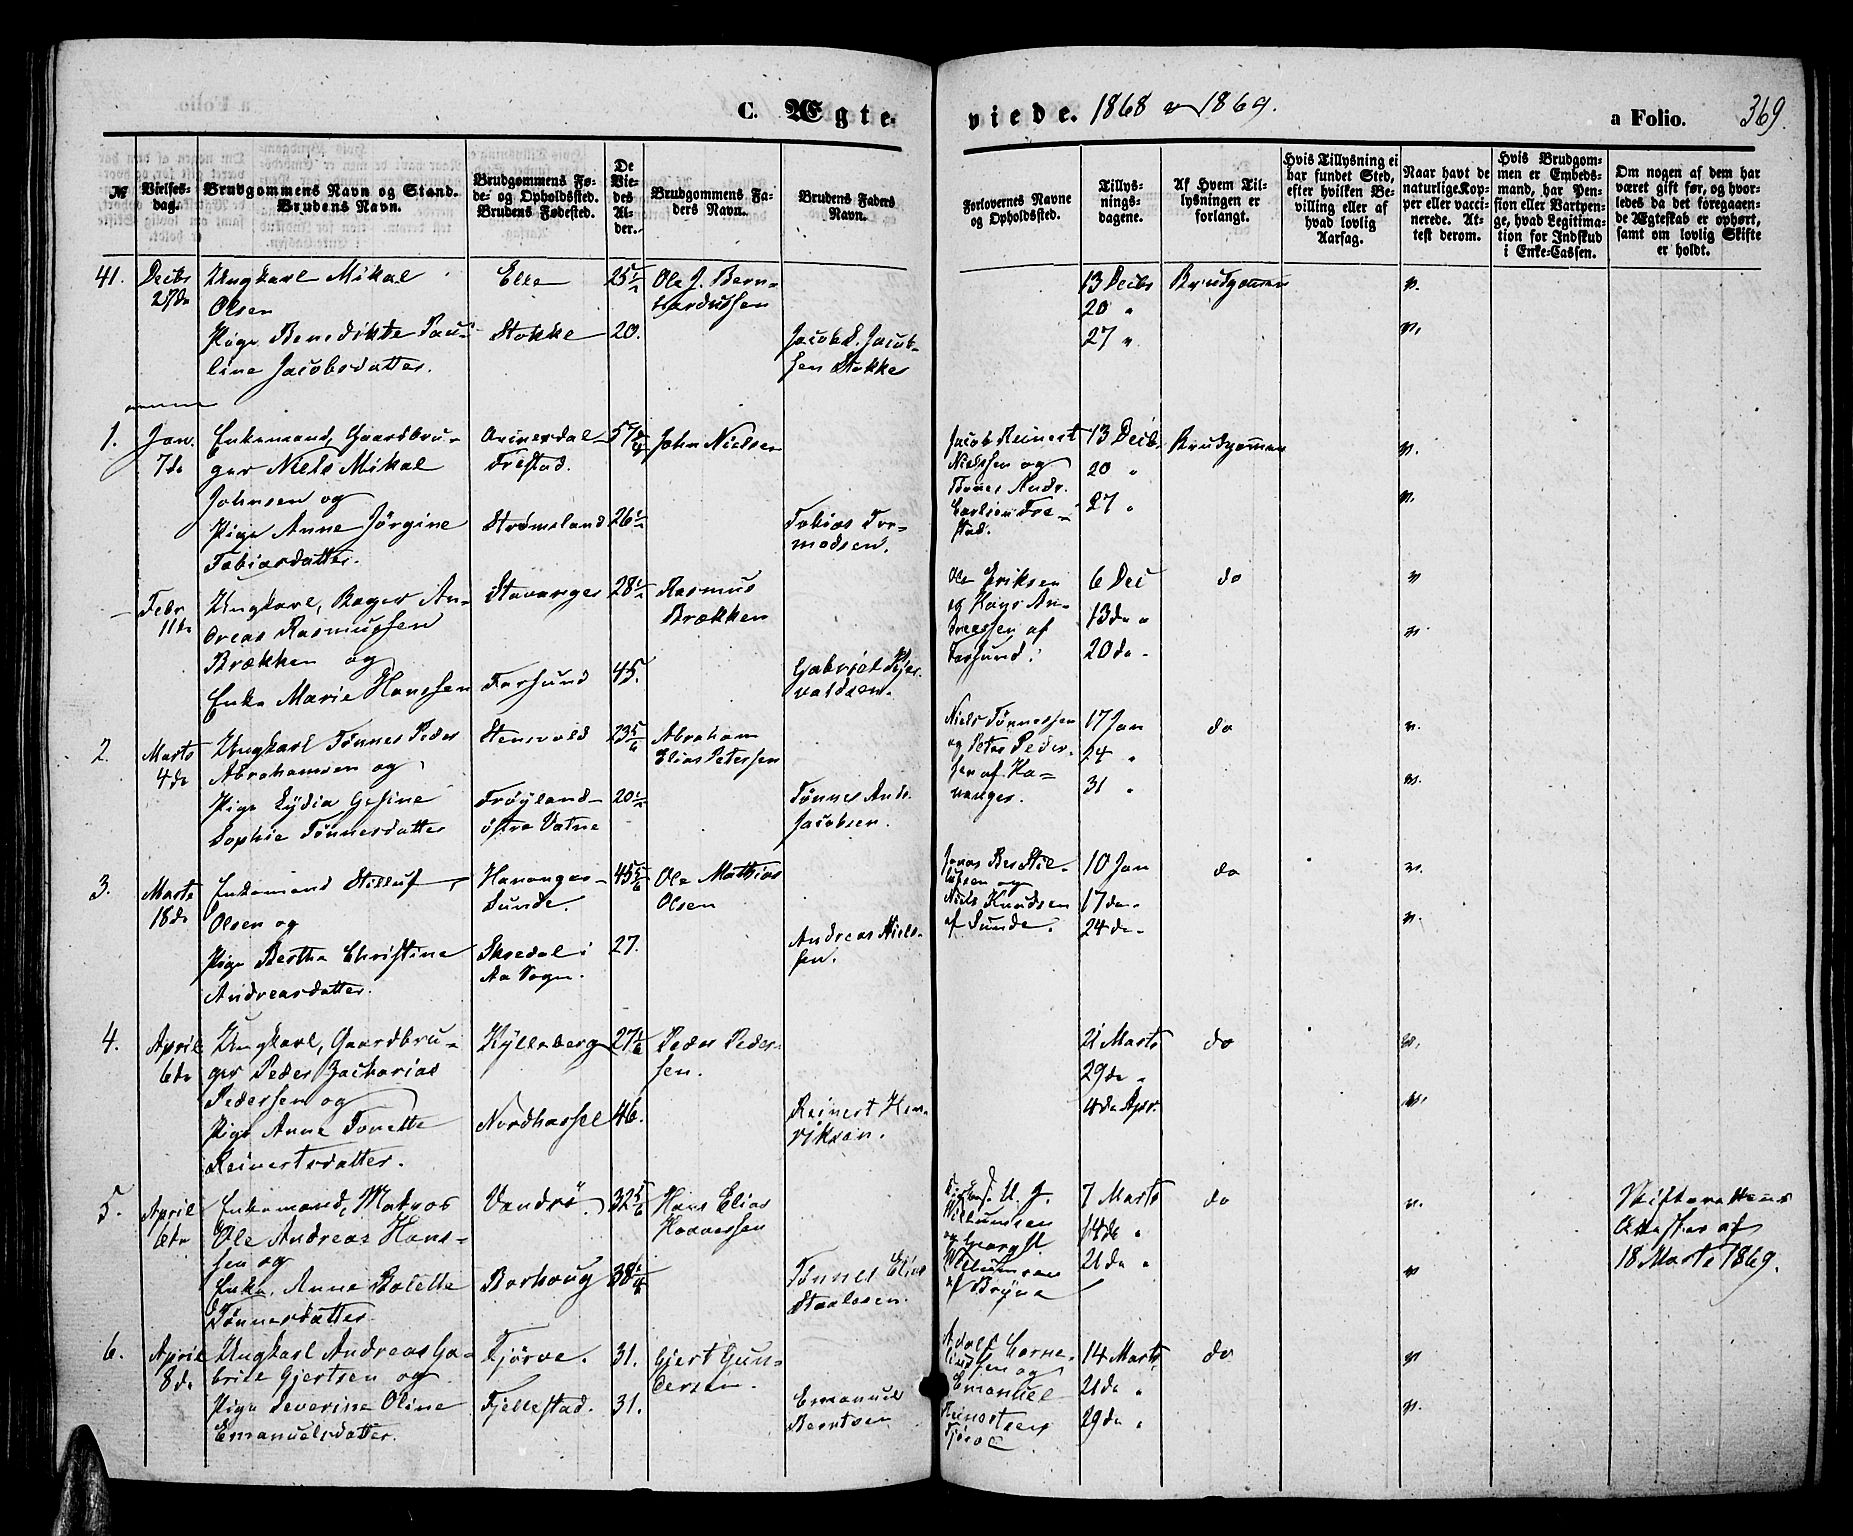 C. Ægte
viede. 1868 & 1869.
a Folio. 369.
№
Vielses-
dag.
Brudgommens Navn og Stand.
Brudens Navn.
Brudgommens Fø-
de- og Opholdssted.
Brudens Fødested.
De
Vie-
des
Al-
der.
Brudgommens Fa-
ders Navn.
Brudens Faders
Navn.
Forlovernes Navne
og Opholdssted.
Tillys-
nings-
dagene.
Af Hvem Til-
lysningen er
forlangt.
Hvis Tillysning ei
har fundet Sted,
efter hvilken Be-
villing eller af
hvad lovlig
Aarsag.
Naar havt de
naturlige Kop-
per eller vacci-
nerede. At-
test derom.
Hvis Brudgom-
men er Embeds-
mand, har Pen-
sion eller Vartpen-
ge, hvad Legitima-
tion for Indskud
i Enke-Cassen.
Om nogen af dem har
været gift før, og hvor-
ledes da det foregaaen-
de Ægteskab er ophørt,
samt om lovlig Skifte
er holdt.
41.
Decbr
27de
Ungkarl Mikal
Olsen
Pige Benedikte Pau-
line Jacobsdatter.
Elle
Stokke
25
20.
Ole J. Bern-
hardussen
Jacob S. Jacob-
sen Stokke
13 Decbr
20 "
27 "
Brudgommen
1.
Jan.
7de
Enkemand, Gaardbru-
ger Niels Mikal
Johnsen og
Pige Anne Jörgine
Tobiasdatter.
Frestad.
Strömsland
57
26
John Nielsen
Tobias Tor-
modsen.
Jacob Reinert
Nielssen og
Tönnes Andr.
Carlsen Fre-
stad.
13 Decbr
20 "
27 "
Brudgommen
Febr
11de
Ungkarl, Bager An-
dreas Rasmussen
Brækken og
Enke Marie Hanssen
Stavanger
Farsund
28
45.
Rasmus
Brækken
Gabriel
valdsen.
Ole Eriksen
og Hans An-
dreassen af
Farsund.
6 Dec
13de "
20de "
do
2.
Marts
4de
Ungkarl Tönnes Peder
Abrahamsen og
Pige Lydia Gesine
Sophie Tönnesdatter
Stensvold
Fröyland
östre Vatne
23 5/6
20
Abraham
Elias Petersen
Tönnes Andr.
Jacobsen.
Niels Tönnessen
og Peter Peder-
sen af Ha-
vanger.
17 Jan
24 "
31 "
do
3.
Marts
18de
Enkemand Stilluf
Olsen og
Pige Bertha Christine
Andreasdatter.
Havanger
Sunde.
Skredal i
Aa Sogn.
45 5/6
27.
Ole Mathias
Olsen
Andreas Niels-
sen.
Jonas Ber Stil-
lufsen og
Niels Knudsen
af Sunde.
10 Jan
17de "
24de "
do
4.
April
6de
Ungkarl, Gaardbru-
ger Peder Zacharias
Pedersen og
Pige Anne Tonette
Reinertsdatter.
Kylleberg
Nordhassel
27
46.
Peder Peder-
sen.
Reinert Hen-
riksen.
21 Marts
29de "
4de Apr.
do
5.
April
6te
Enkemand, Matros
Ole Andreas Hans-
sen og
Enke, Anne Bolette
Tönnesdatter.
Vandrö.
Borhaug
32 5/6
38
Hans Elias
Haavessen
Tönnes Elias
Staalesen.
og Georg
7 Marts
14de "
21de "
do
Skifteretten
Attest af
18 Marts 1869.
6.
April
8de
Ungkarl Andreas Ga-
briel Gjertsen og
Pige Severine Oline
Emanuelsdatter.
Fjörve.
Fjellestad.
31.
31.
Gjert Gun-
dersen.
Emanuel
Berntsen
Adolf Corne-
liussen og
Emanuel
Reinertsen
Fjörve
14 Marts
21de "
29de "
do